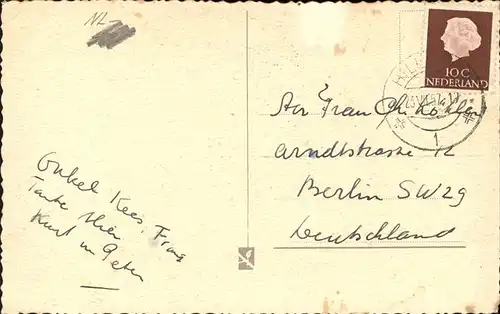 NL
10 C
NEDERLAND
An Frau Ch. Köhler
Arndtstrasse 12
Berlin SW 29
Deutschland
Onkel Kees, Frans
Tante Mien
Kurt u Peter
1